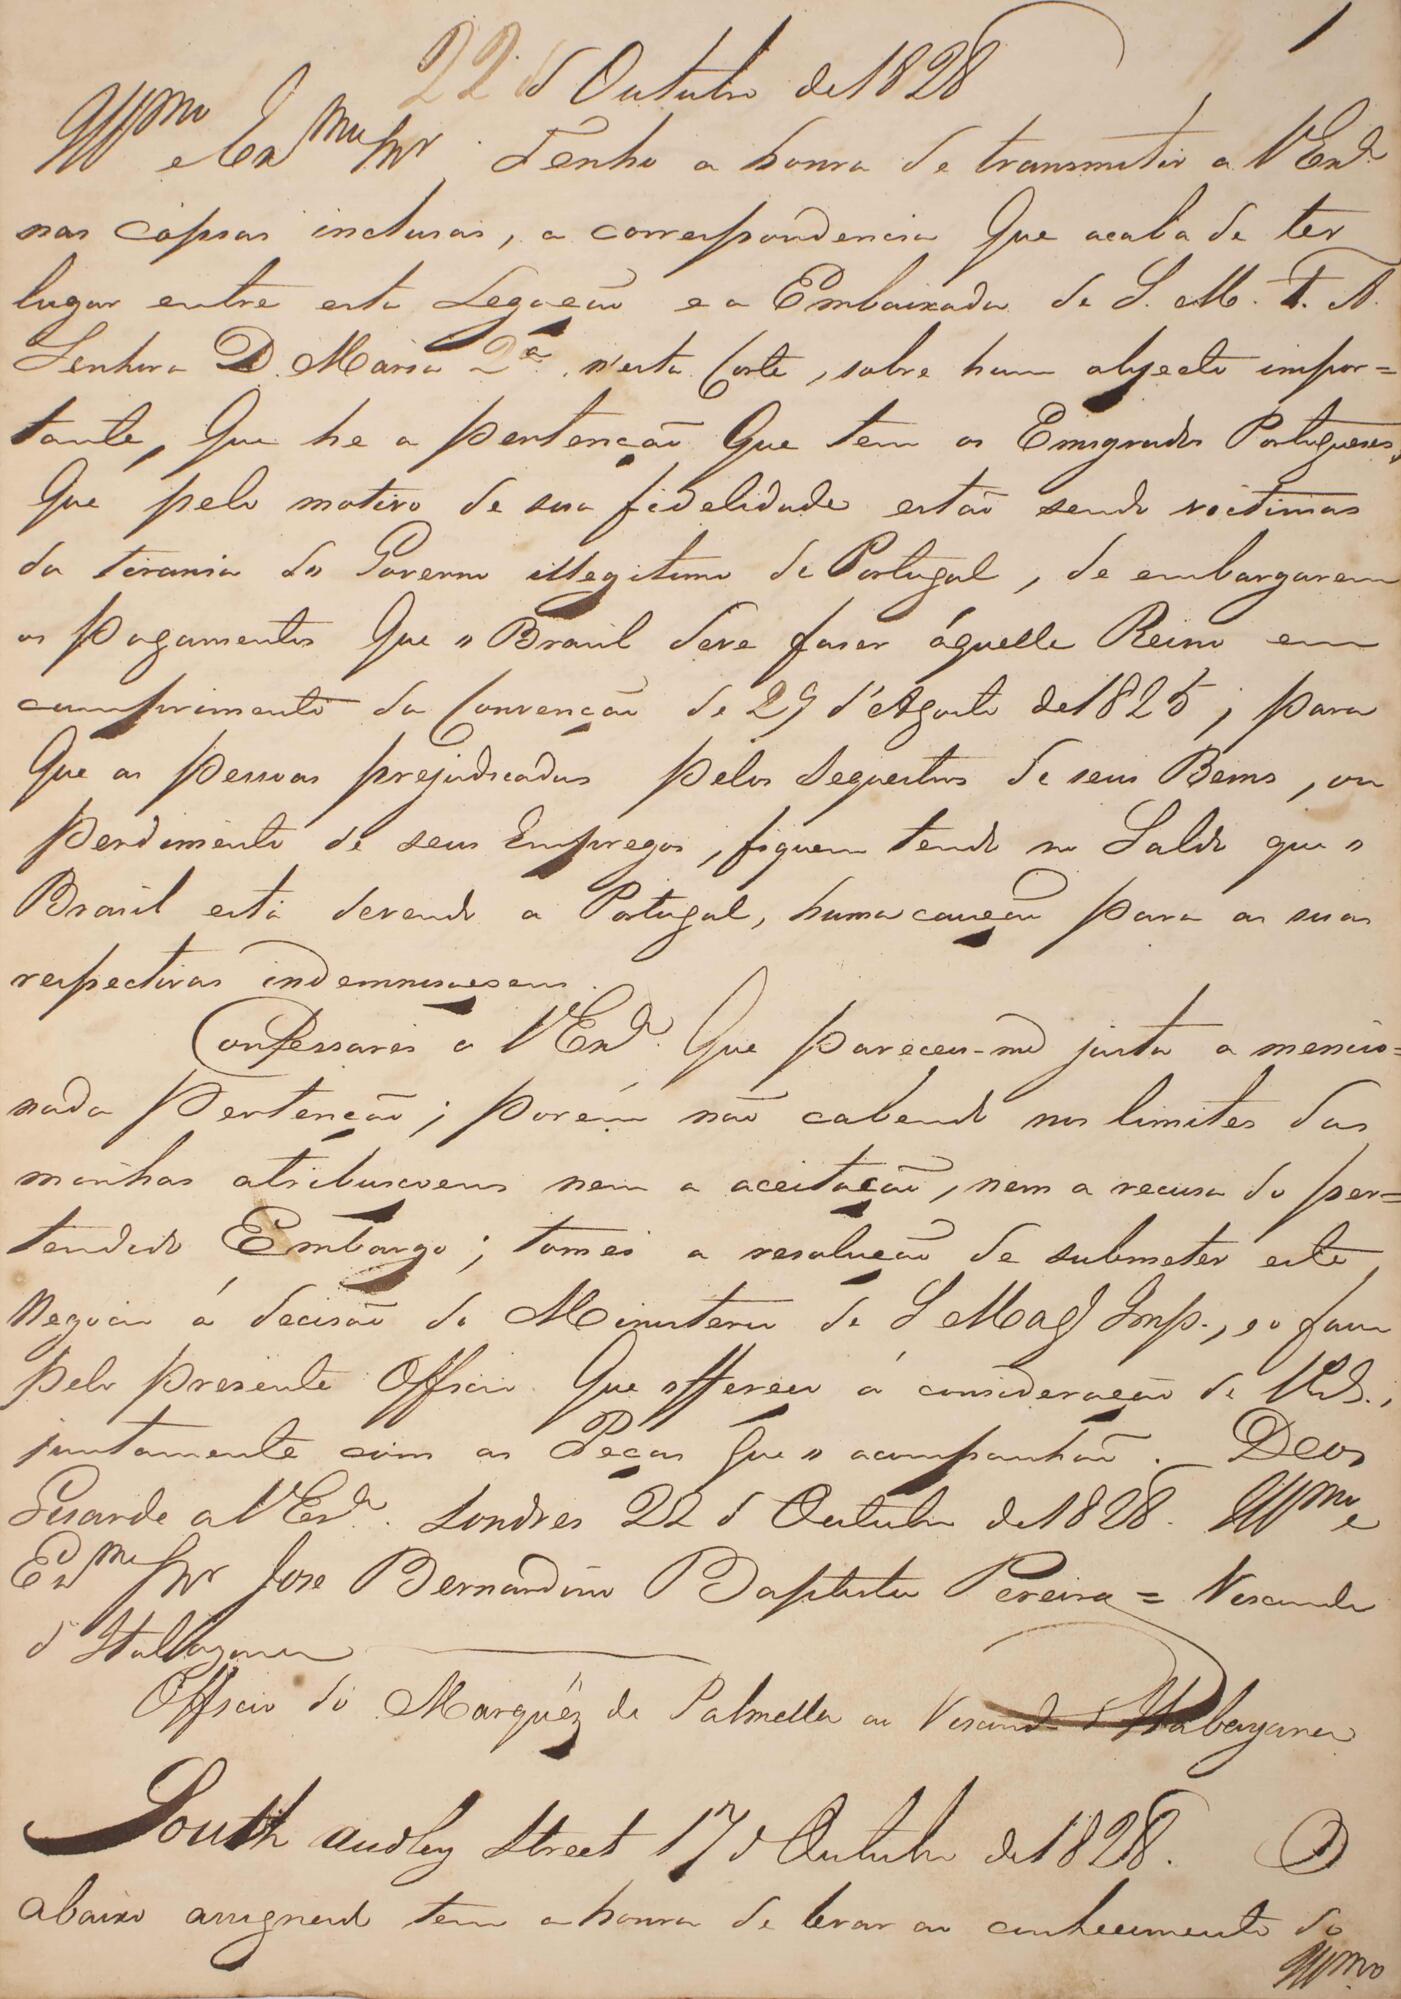 1
22 d'Outubro de 1828
Illmo e Exmo Snr. Tenho a honra de transmitir a VExca
nas cópias inclusas, a correspondencia que acaba de ter
lugar entre esta Legação e a Embaixada de S. M. F. A
Senhora D. Maria 2a nesta Corte, sobre hum objecto impor=
tante, que he a pertenção que tem os Emigrados Portugueses,
que pelo motivo de sua fidelidade estão sendo victimas
da tirania do Governo illegitimo de Portugal, de embargarem
os pagamentos que o Brasil deve faser áquelle Reino em
cumprimento da Convenção de 29 d'Agosto de 1825; para
que as pessoas prejudicadas pelos sequestros de seus Bems, ou
perdimento de seus Empregos, fiquem tendo no Saldo que o
Brasil está devendo a Portugal, huma caução para as suas
respectivas indemnisaçoens.
Confessarei a VExca. que pareceu-me justa a mencio=
nada Pertenção; porém não cabendo nos limites das
minhas atribuiçoens nem a aceitação, nem a recusa do per=
tendido Embargo; tomei a resolução de submeter este
negocio á decisão do Ministerio de S Mage Imp., e o faço
pelo presente Officio que offereço á consideração de VExa.,
juntamente com as Peças que o acompanhão. Deos
Guarde a VExca. Londres 22 d'Outubro de 1828. Illmo e
Exmo Snr Jose Bernardino Baptista Pereira = Visconde
d'Itabayana
Officio do Marquêz de Palmella ao Visconde d'Itabayana
South audley Street 17 d'Outubro de 1828. O
abaixo assignado tem a honra de levar ao conhecimento do
Illmo